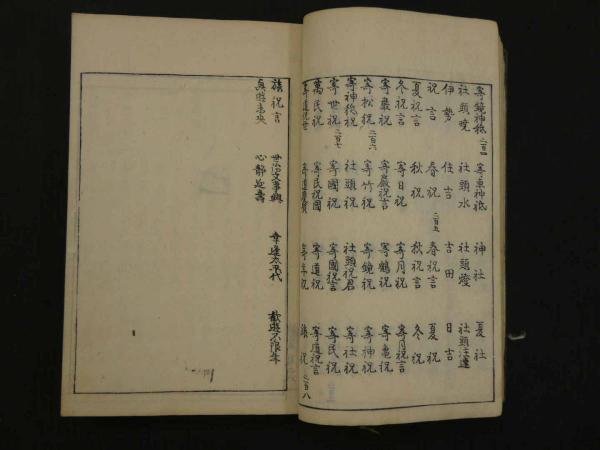 寄鏡神祇 寄車神祇 神社 夏社
社頭暁 社頭水 社頭燈 社頭注連
伊勢 住吉 吉田 日吉
祝言 春祝 二百五 春祝言 夏祝
夏祝言 秋祝 秋祝言 冬祝
冬祝言 寄日祝 寄月祝 寄月祝言
寄巌祝 寄巌祝言 寄鶴祝 寄亀祝
寄松祝 二百六 寄竹祝 寄鏡祝 寄神祝
寄神祇祝 社頭祝 社頭祝君 寄社祝
寄世祝 二百七 寄國祝 寄國祝言 寄民祝
萬民祝 寄民祝國 寄道祝 寄道祝言
寄道祝世 寄年祝 祝 二百八
旅祝言 世治文事興 幸逢太平代 歓遊不限年
遊未央 心静延壽